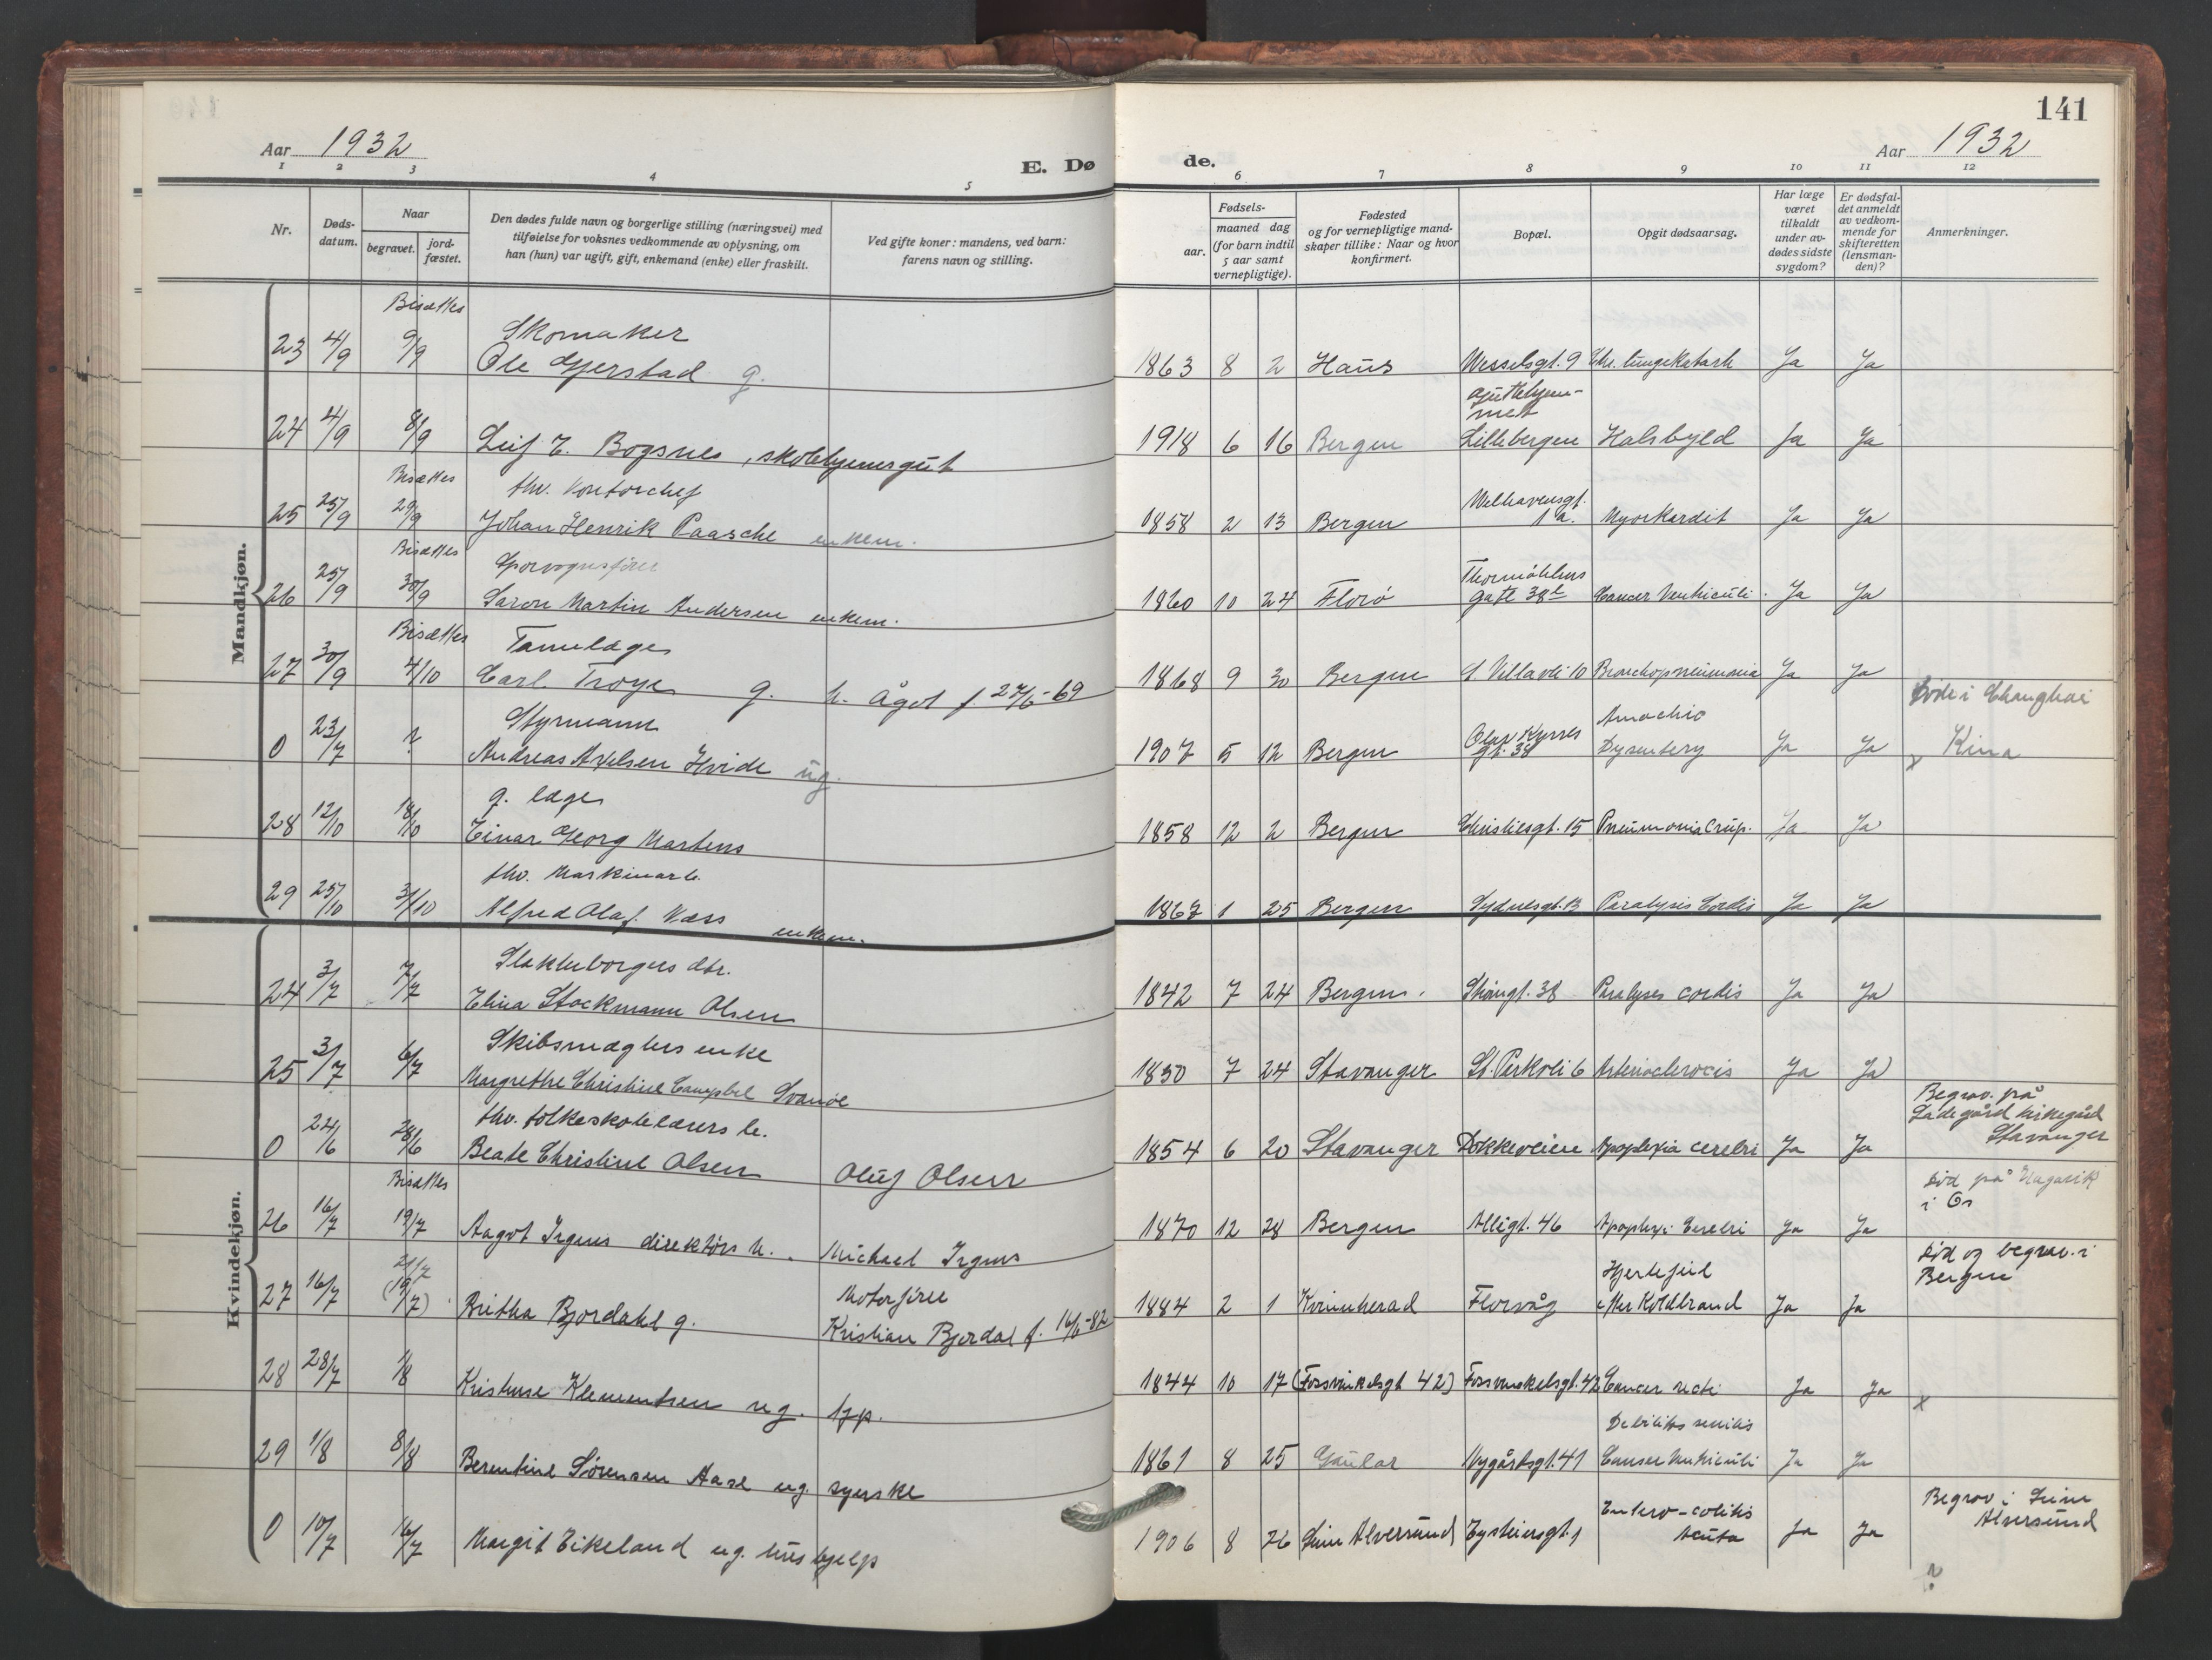 141
Aar 1932
E. Dø
de.
Aar 1932
1 2 3 4 5 6 7 8 9 10 11 12
Nr.
Døds-
datum.
Naar
begravet.
jord-
fæstet.
Den dødes fulde navn og borgerlige stilling (næringsvei) med
tilføielse for voksnes vedkommende av oplysning, om
han (hun) var ugift, gift, enkemand (enke) eller fraskilt.
Ved gifte koner: mandens, ved barn:
farens navn og stilling.
Fødsels-
aar.
maaned dag
(for barn indtil
5 aar samt
vernepligtige).
Fødested
og for vernepligtige mand-
skaper tillike: Naar og hvor
konfirmert.
Bopæl.
Opgit dødsaarsag.
Har læge
været
tilkaldt
under av-
dødes sidste
sygdom?
Er dødsfal-
det anmeldt
av vedkom-
mende for
skifteretten
(lensman-
den)?
Anmerkninger.
Mandkjøn.
Bisættes
Skomaker
23 4/9 9/9 Ole Gjerstad g. 1863 8 2 Haus Wesselsgt. 9 Chr. lungekatarh Ja Ja
Guttehjem-
met
24 4/9 8/9 Leif E. Bogsnes, skolehjemsgut 1918 6 16 Bergen Lillebergen Halsbyld Ja Ja
Bisættes
fhv. Kontorchef
Welhavensgt.
25 25/9 29/9 Johan Henrik Paasche enkem. 1858 2 13 Bergen 1a. Myorkardit Ja Ja
Bisættes
Sporvognsfører
Thormøhlens
26 25/9 30/9 Saron Martin Andersen enkem. 1860 10 24 Florø gate 38 Cancer Ventriculi Ja Ja
Bisættes
Tannlæge
27 30/9 4/10 Carl Troye g. h. Ågot f 27/6-69 1868 9 30 Bergen S. Villavei 10 Bronchopneumonia Ja Ja
Døde i Changhai
Styrmann
Olav Kyrres
0 23/7 ? Andreas Axelsen Hvide ug. 1907 5 12 Bergen gt. 38 Dysentery Ja Ja x Kina
g. læge
28 12/10 18/10 Einar Georg Martens 1858 12 2 Bergen Christiesgt. 15 Pneumonia Crup. Ja Ja
fhv. Maskinarb.
29 25/10 3/10 Alfred Olaf Næss enkem. 1867 1 25 Bergen Sydnesgt. 13 Paralysis Cordis Ja Ja
Kvindekjøn.
Slakterborgers dtr.
24 3/7 7/7 Elina Stockmann Olsen 1842 7 24 Bergen. Strandgt. 38 Paralyses cordis Ja Ja
Skibsmæglers enke
25 3/7 6/7 Margrethe Christine Campbel Svanøe 1850 7 24 Stavanger St. Parkvei 6 Arteriosclerocis Ja Ja
Begrav. på
Ladegård kirkegård
Stavanger
fhv. folkeskolelærers h.
0 24/6 28/6 Beate Christine Olsen Oluf Olsen 1854 6 20 Stavanger Dokkeveien Apoplexia cerebri Ja Ja
Bisættes
Død på
i Os
26 16/7 19/7 Aagot Irgens direktørs h. Michael Irgens 1870 12 28 Bergen Allégt. 46 Apoplexi Cerebri Ja Ja
Død og begrav. i
Bergen
21/7
Motorfører
Hjertefeil
27 16/7 (19/7) Britha Bjordahl g. Kristian Bjordal f. 16/6-82 1884 2 1 Kvinnherad Florvåg etter Koldbrand Ja Ja
28 28/7 1/8 Kristense Klementsen ug. 1844 10 17 (Fosswinkelsgt 42) Fosswinkelsgt. 42 Cancer recti Ja Ja x
Debilitas senilis
29 1/8 8/8 Berentine Sørensen Aase ug. syerske 1861 8 25 Gaular Nygårdsgt. 41 Cancer Ventriculi Ja Ja
Begrav i Seim
Alversund
Entero-colitis
0 10/7 16/7 Margit Eikeland ug. hushjelp 1906 8 26 Seim Alversund Eysteinsgt. 1 Acuta Ja Ja
?